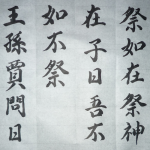 祭如在祭神
在子曰吾不
如不祭
王孫賈問曰